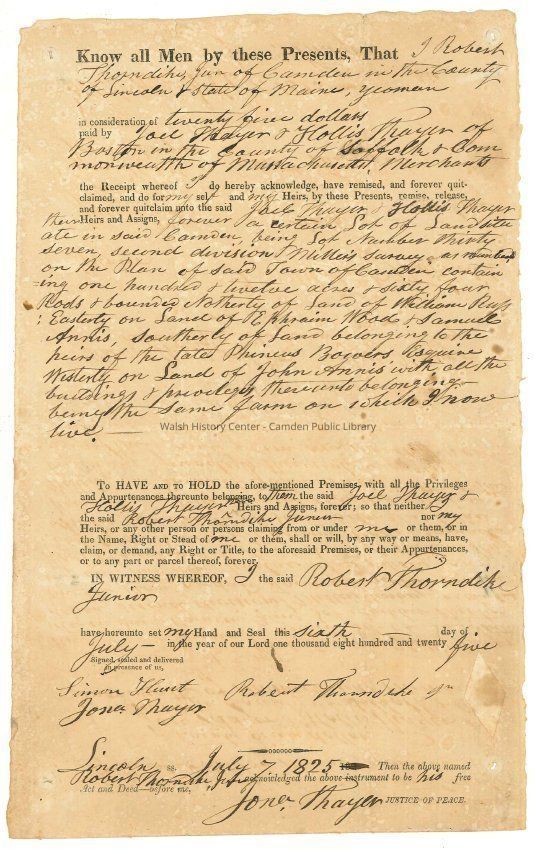 Know all Men by these Presents, That I Robert
Thorndike, Jun of Camden in the County
of Lincoln & State of Maine, yeoman
in consideration of twenty five dollars
paid by Joel Thayer & Hollis Thayer of
Boston in the County of Suffolk & Com
monwealth of Massachusetts, Merchants
the Receipt whereof I do hereby acknowledge, have remised, and forever quit-
claimed, and do for my self and my Heirs, by these Presents, remise, release,
and forever quitclaim unto the said Joel Thayer & Hollis Thayer
their Heirs and Assigns, forever a certain Lot of Land situ
ate in said Camden being Lot Number thirty
seven second division Miller's survey as
on the Plan of said Town of Camden contain
ing one hundred & twelve acres & sixty four
Rods & bounded Northerly of Land of William Russ
Easterly on Land of Ephraim Wood & Samuel
Annis, Southerly of Land belonging to the
heirs of the late Phineus Bowers Esquire
Westerly on Land of John Annis with all the
buildings & privileges thereunto belonging
being the same farm on which I now
live.
Walsh History Center - Camden Public Library
To HAVE AND TO HOLD the afore-mentioned Premises, with all the Privileges
and Appurtenances thereunto belonging, to them the said Joel Thayer &
Hollis Thayer Heirs and Assigns, forever; so that neither I
the said Robert Thorndike Junior nor my
Heirs, or any other person or persons claiming from or under me or them, or in
the Name, Right or Stead of me or them, shall or will, by any way or means, have,
claim, or demand, any Right or Title, to the aforesaid Premises, or their Appurtenances,
or to any part or parcel thereof, forever.
IN WITNESS WHEREOF, I the said Robert Thorndike
Junior
have hereunto set my Hand and Seal this sixth day of
July in the year of our Lord one thousand eight hundred and twenty five
Signed, sealed and delivered
in presence of us,
Simon Hunt Robert Thorndike jr
Jona. Thayer
Lincoln ss. July 7 1825 Then the above named
Robert Thorndike Jr acknowledged the above instrument to be his free
Act and Deed—before me,
Jona. Thayer JUSTICE OF PEACE.